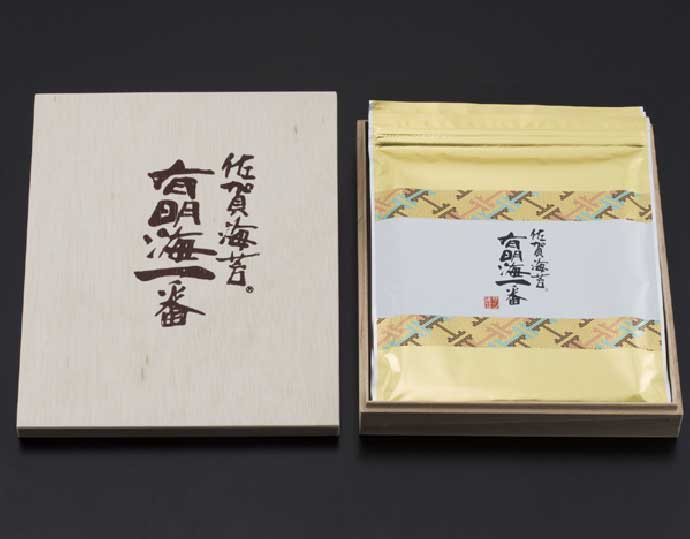 佐賀海苔®
有明海一番
佐賀海苔®
有明海一番